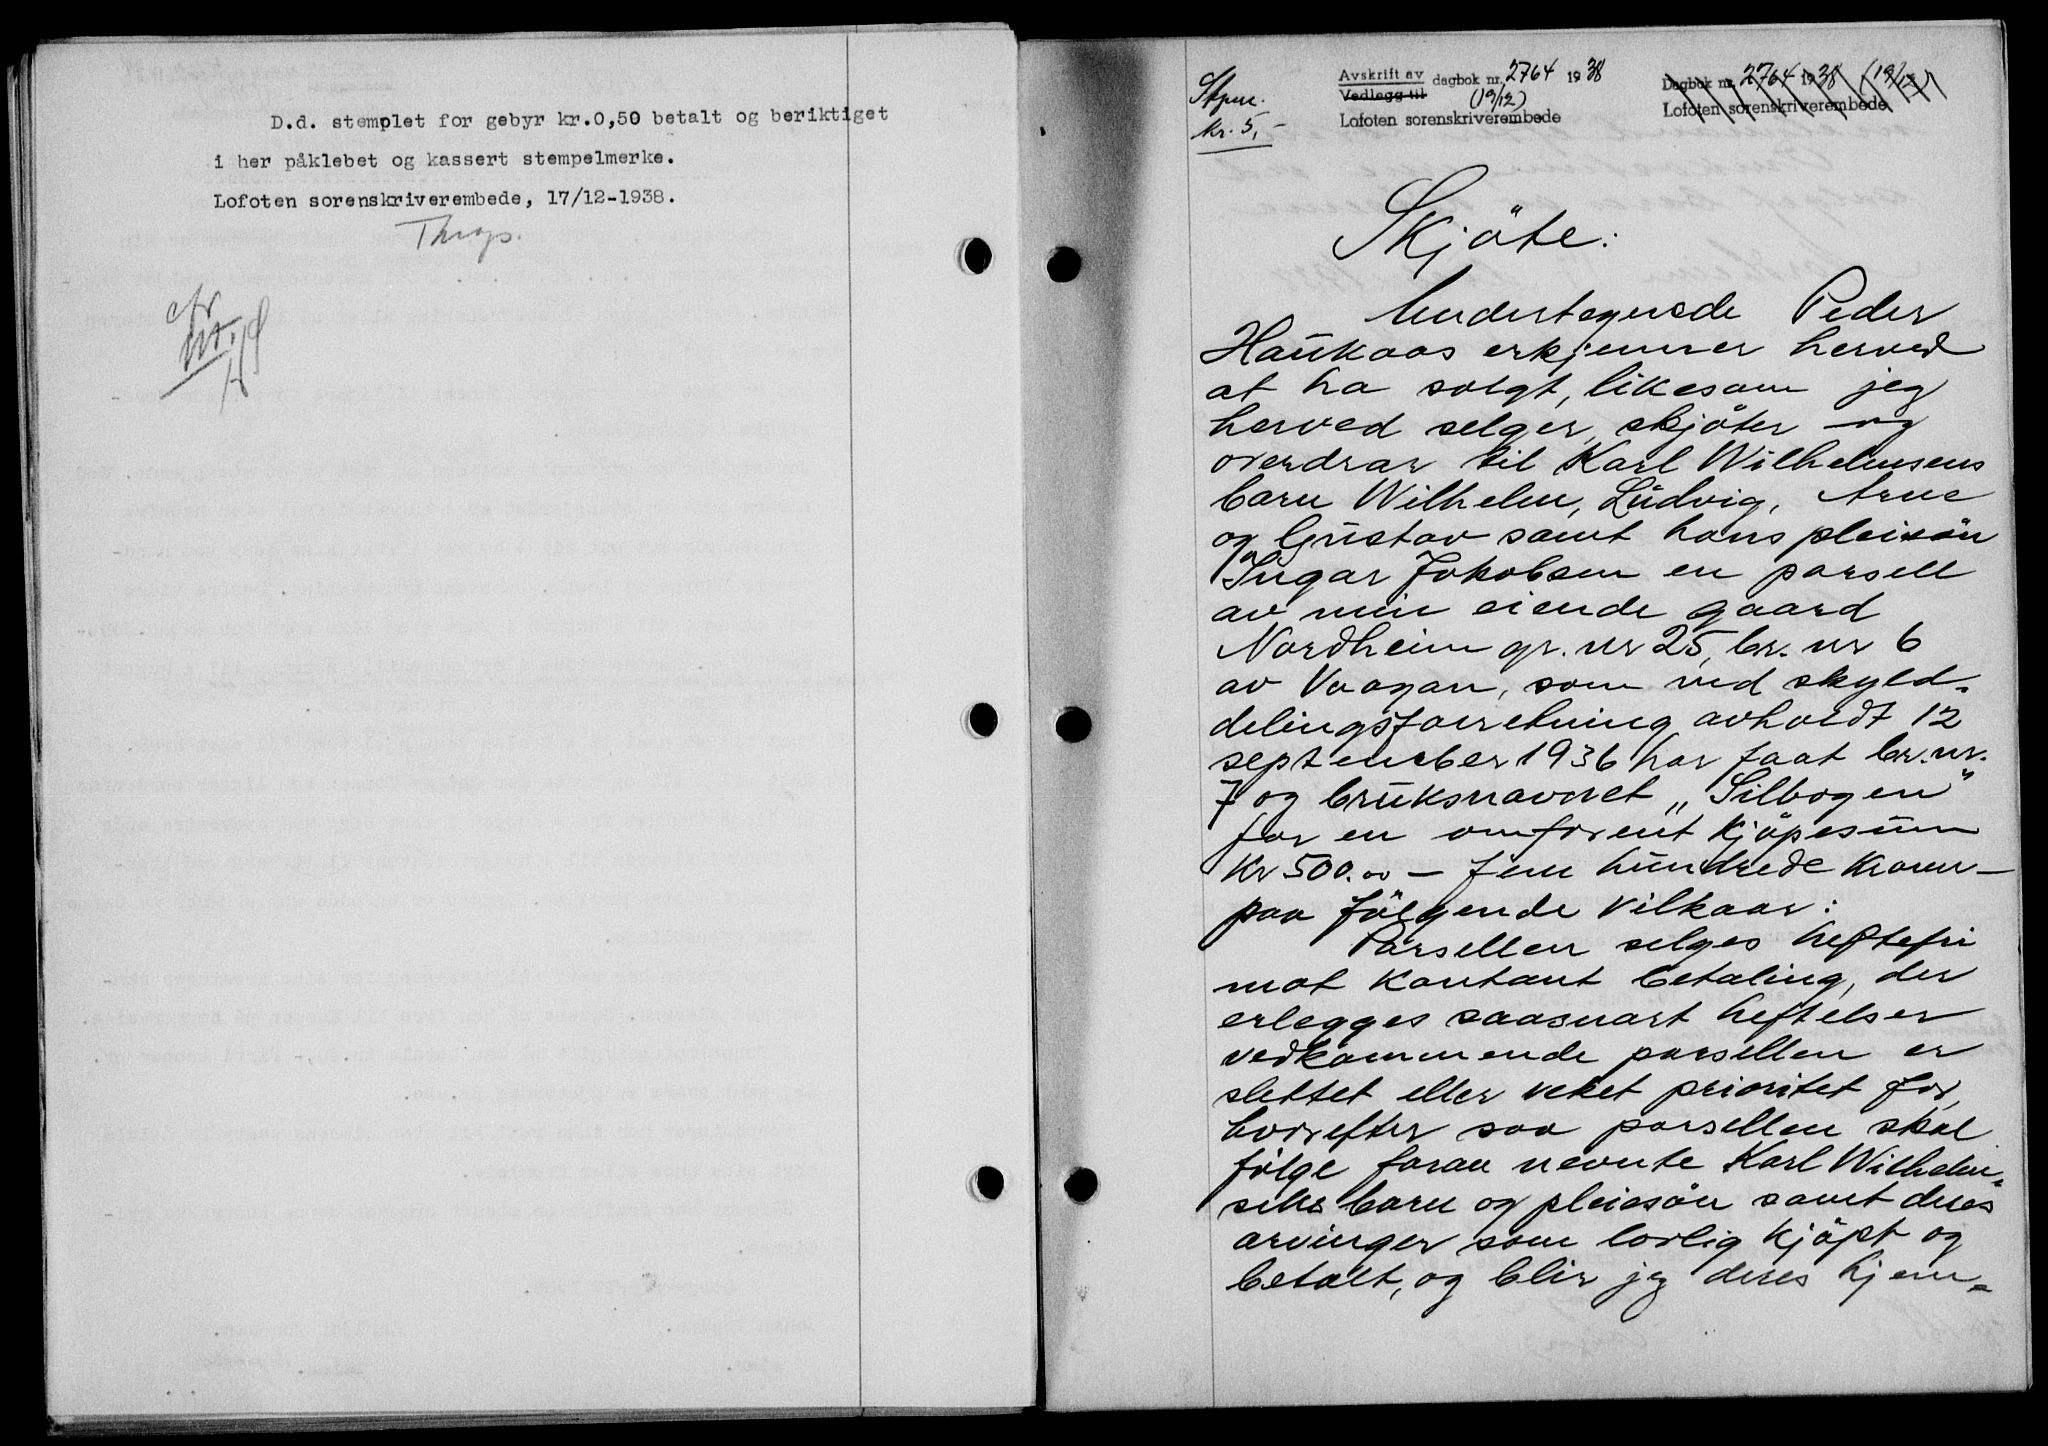 D.d. stemplet for gebyr kr.0,50 betalt og beriktiget
i her påklebet og kassert stempelmerke.
Lofoten sorenskriverembede, 17/12-1938.
Avskrift av
Vedlegg til
dagbok nr. 2764 1938
(19/12)
Lofoten sorenskriverembede
Dagbok nr. 2764 1938 (19/12)
Lofoten sorenskriverembede
kr. 5,-
Skjöte:
Undertegnede Peder
Haukaas erkjenner herved
at ha solgt, likesom jeg
herved selger, skjöter og
overdrar til Karl Wilhelmsens
barn Wilhelm, Ludvig, Arne
og Gustav samt hans pleisön
Ingar Jakobsen en parsell
av min eiende gaard
Nordheim gr. nr 25, br. nr 6
av Vaagan, som ved skyld-
delingsforretning avholdt 12
september 1936 har faat br. nr.
7 og bruksnavnet „Silbogen"
for en omforent kjöpesum
Kr 500.00 — fem hundrede kroner —
paa fölgende vilkaar:
Parsellen selges heftefri
mot kontant betaling, der
erlegges saasnart heftelser
vedkommende parsellen er
slettet eller veket prioritet for,
hvorefter saa parsellen skal
fölge foran nevnte Karl Wilhelm-
sens barn og pleiesön samt deres
arvinger som lovlig kjöpt og
betalt, og blir jeg deres hjem-